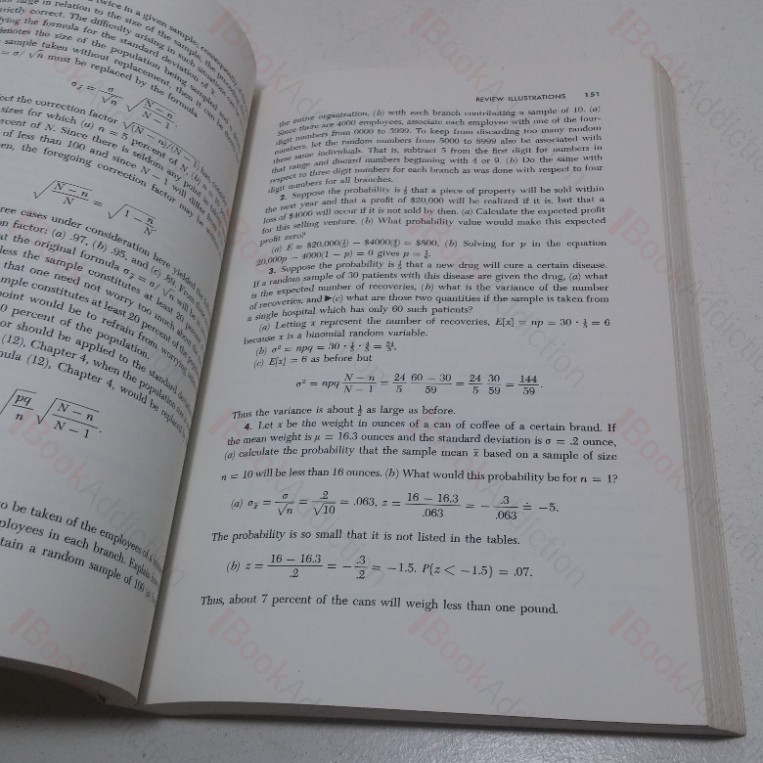 twice in a given sample, consequently
large in relation to the size of the sample, the
strictly correct. The difficulty arising in such
ying the formula for the standard deviation of
denotes the size of the population being sampled and
sample taken without replacement, then it can be
= σ/√n must be replaced by the formula
σx̄ = σ/√n √(N − n)/(N − 1)
ect the correction factor √(N − n)/(N − 1) has
sizes for which (a) n = 5 percent of N, (b)
percent of N. Since there is seldom any point
of less than 100 and since N − 1 will differ
en, the foregoing correction factor may be
√(N − n)/N = √1 − n/N
ree cases under consideration here yielded the
on factor: (a) .97, (b) .95, and (c) .89. From these
at the original formula σx̄ = σ/√n will be
less the sample constitutes at least 20 percent
that one need not worry too much about the
mple constitutes at least 20 percent of the
point would be to refrain from worrying
0 percent of the population.
or should be applied to the standard
(12), Chapter 4, when the population
mula (12), Chapter 4, would be replaced by
√pq/n √(N − n)/(N − 1)
o be taken of the employees of a
ployees in each branch. Explain
tain a random sample of 100
REVIEW ILLUSTRATIONS 151
the entire organization, (b) with each branch contributing a sample of 10. (a)
Since there are 4000 employees, associate each employee with one of the four-
digit numbers from 0000 to 3999. To keep from discarding too many random
numbers, let the random numbers from 5000 to 8999 also be associated with
these same individuals. That is, subtract 5 from the first digit for numbers in
that range and discard numbers beginning with 4 or 9. (b) Do the same with
respect to three digit numbers for each branch as was done with respect to four
digit numbers for all branches.
2. Suppose the probability is that a piece of property will be sold within
the next year and that a profit of $20,000 will be realized if it is, but that a
loss of $4000 will occur if it is not sold by then. (a) Calculate the expected profit
for this selling venture. (b) What probability value would make this expected
profit zero?
(a) E = $20,000 − $4000 = $800, (b) Solving for p in the equation
20,000p − 4000(1 − p) = 0 gives p =
3. Suppose the probability is ⅕ that a new drug will cure a certain disease.
If a random sample of 30 patients with this disease are given the drug, (a) what
is the expected number of recoveries, (b) what is the variance of the number
of recoveries, and ▶(c) what are those two quantities if the sample is taken from
a single hospital which has only 60 such patients?
(a) Letting x represent the number of recoveries, E[x] = np = 30 · ⅕ = 6
because x is a binomial random variable.
(b) σ² = npq = 30 · ⅕ · ⅘ = 24/5.
(c) E[x] = 6 as before but
σ² = npq (N − n)/(N − 1) = 24/5 (60 − 30)/59 = 24/5 30/59 = 144/59.
Thus the variance is about ½ as large as before.
4. Let x be the weight in ounces of a can of coffee of a certain brand. If
the mean weight is μ = 16.3 ounces and the standard deviation is σ = .2 ounce,
(a) calculate the probability that the sample mean x̄ based on a sample of size
n = 10 will be less than 16 ounces. (b) What would this probability be for n = 1?
(a) σx̄ = σ/√n = .2/√10 = .063, z = (16 − 16.3)/.063 = − .3/.063 ≐ −5.
The probability is so small that it is not listed in the tables.
(b) z = (16 − 16.3)/.2 = − .3/.2 = −1.5. P{z < −1.5} = .07.
Thus, about 7 percent of the cans will weigh less than one pound.
BookAddiction